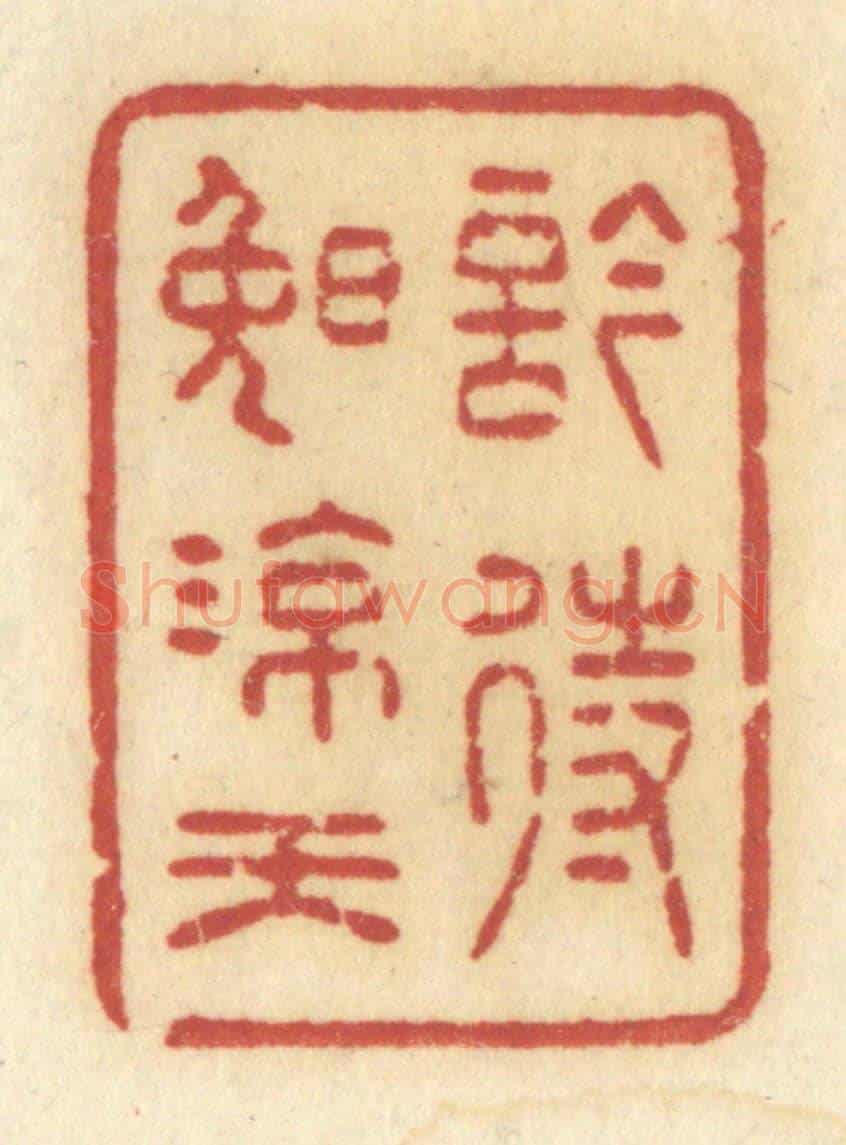 訡待
晚涼天
Shufawang.CN